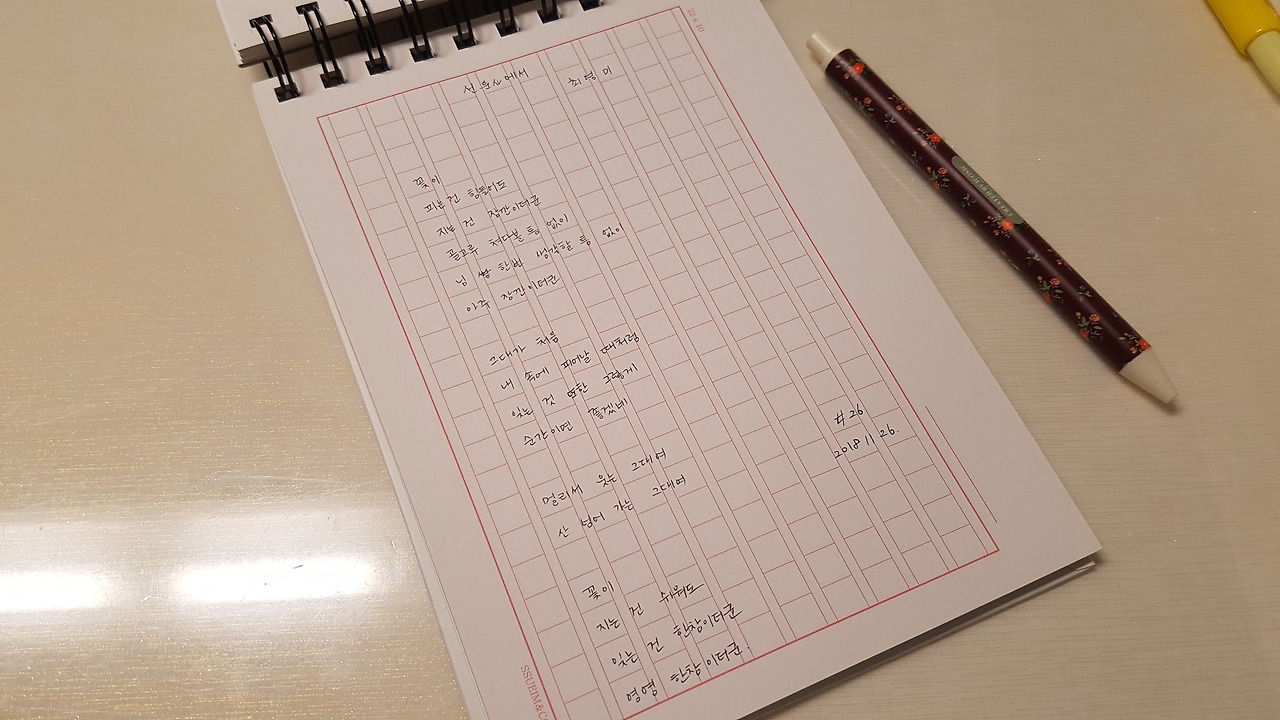 선운사에서 최영미
꽃이
피는 건 힘들어도
지는 건 잠깐이더군
골고루 쳐다볼 틈 없이
님 한번 생각할 틈 없이
아주 잠깐이더군
그대가 처음
내 속에 피어날 때처럼
잊는 것 또한 그렇게
순간이면 좋겠네
멀리서 웃는 그대여
산 넘어 가는 그대여
꽃이
지는 건 쉬워도
잊는 건 한참이더군
영영 한참이더군.
#26
2018 11 26.
22 x 10
SSUEIM&CO